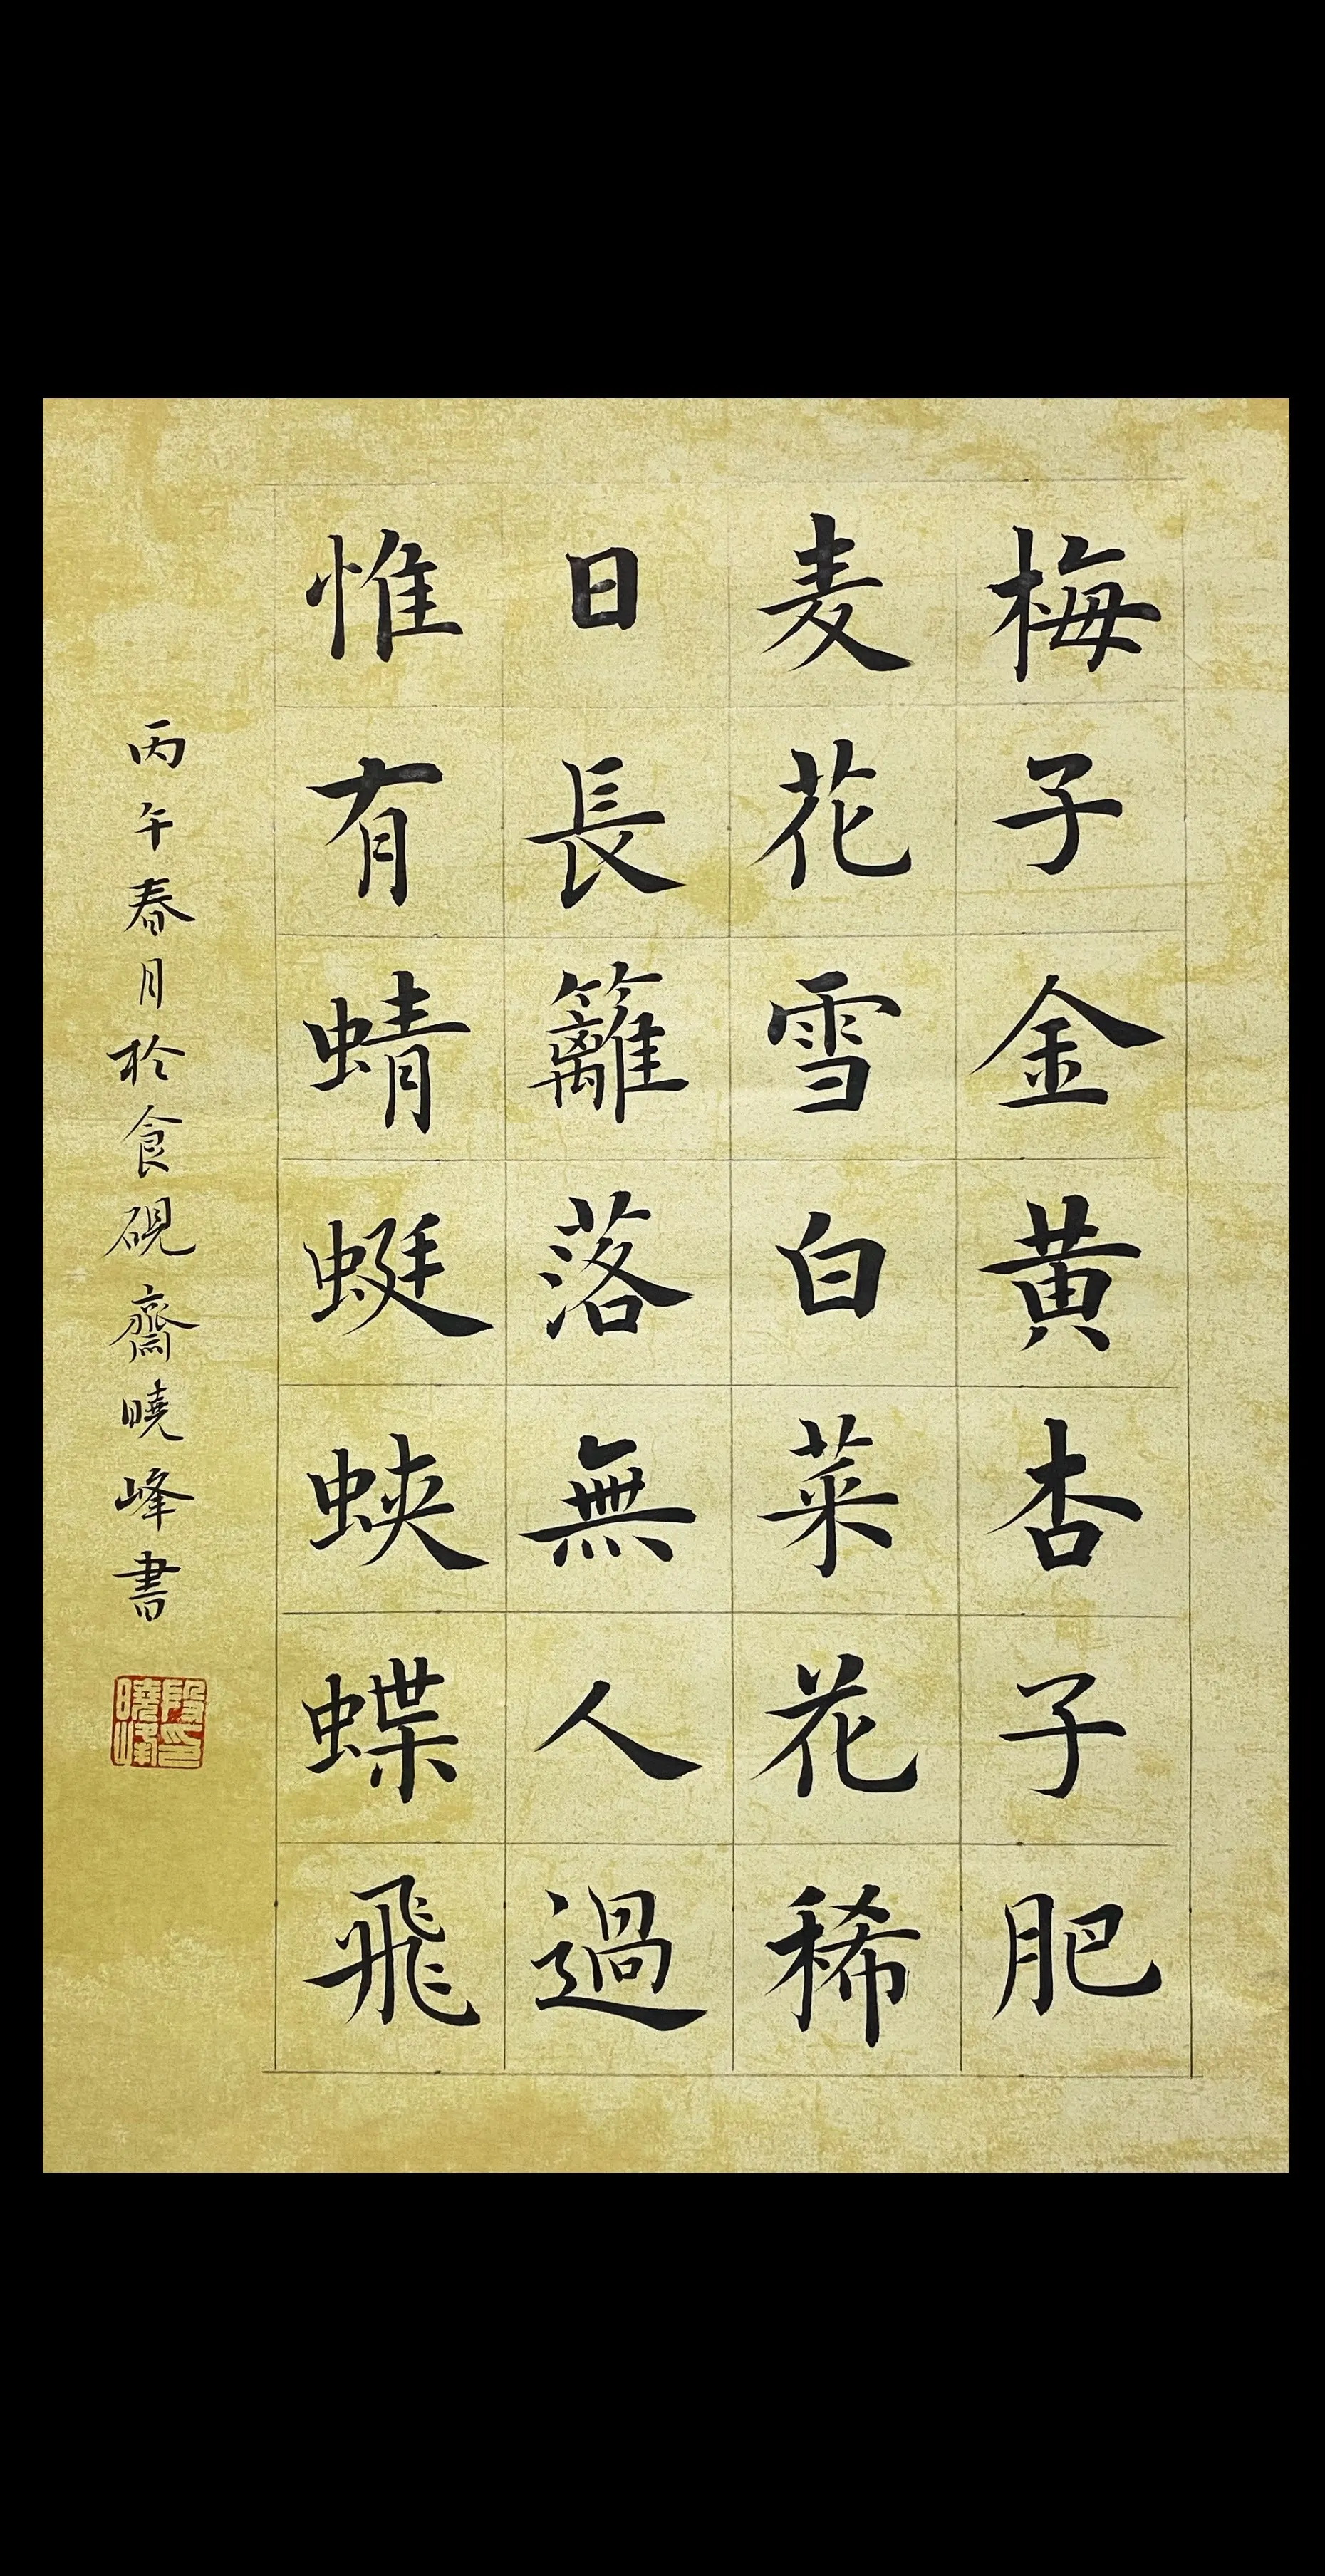 梅子金黄杏子肥
麦花雪白菜花稀
日長籬落無人過
惟有蜻蜓蛺蝶飛
丙午春月於食硯齋曉峰書
段曉峰印